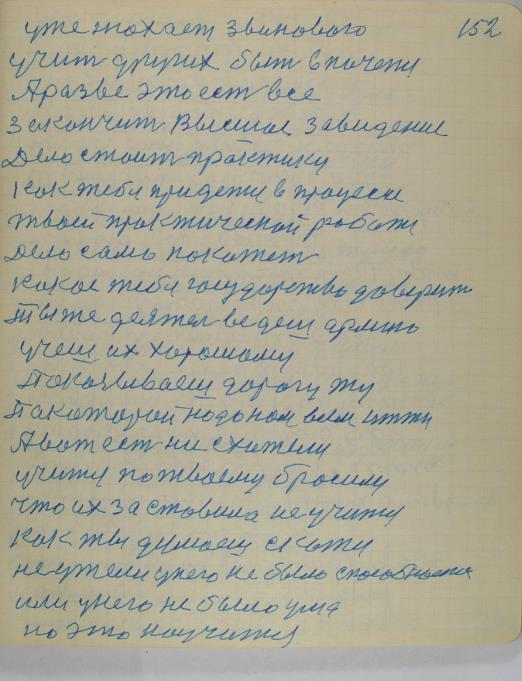 152
уже тохает звиновово
учит других быт впочети
А разве это ест все
Закончит Высшие Заведение
Дело стоит практики
Как тебя придети в процеси
твоей практической работи
Дело само покажет
какое тебя государство доверит
Ты же деятел ведеш армию
учеш их хорошому
Показиваеш дорогу ту
Па которой надо нам всем итти
А вот ест ни схотели
учити по твоему бросили
что их заставила не учити
как ты думаеш скажи
неужели унего не было способности
или унего не было ума
но это научится